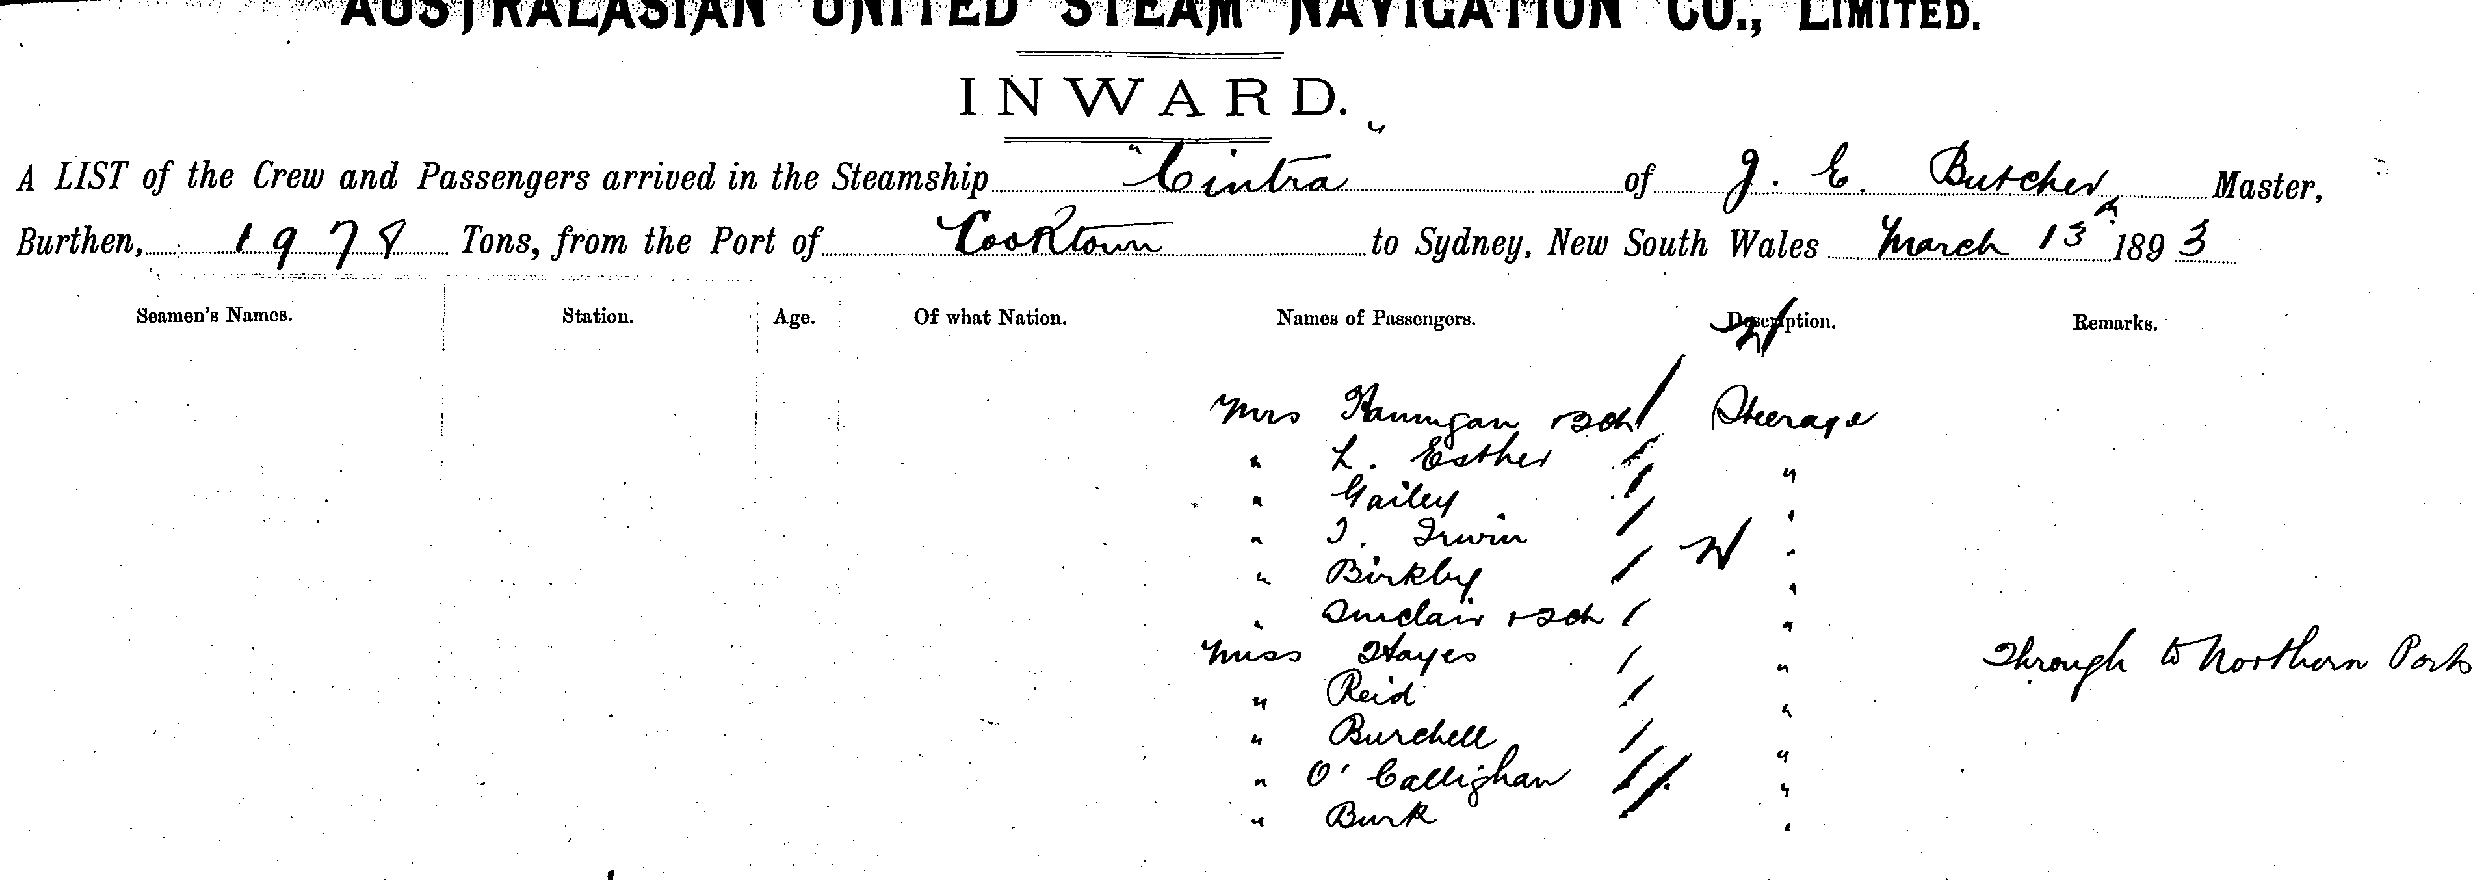 AUSTRALASIAN UNITED STEAM NAVIGATION CO., LIMITED.
INWARD.
A LIST of the Crew and Passengers arrived in the Steamship "Cintra" of J. E. Butcher Master,
Burthen, 1978 Tons, from the Port of Cooktown to Sydney, New South Wales March 13th 1893
Seamen's Names. Station. Age. Of what Nation. Names of Passengers. Description. Remarks.
Mrs Hannigan + 2 ch / Steerage
" L. Esther / "
" Gailey / "
" T. Irwin / "
" Birkby / "
" Sinclair + 2 ch / "
Miss Hayes / " Through to Northern Ports
" Reid / "
" Burchell / "
" O'Callighan / / "
" Burk "